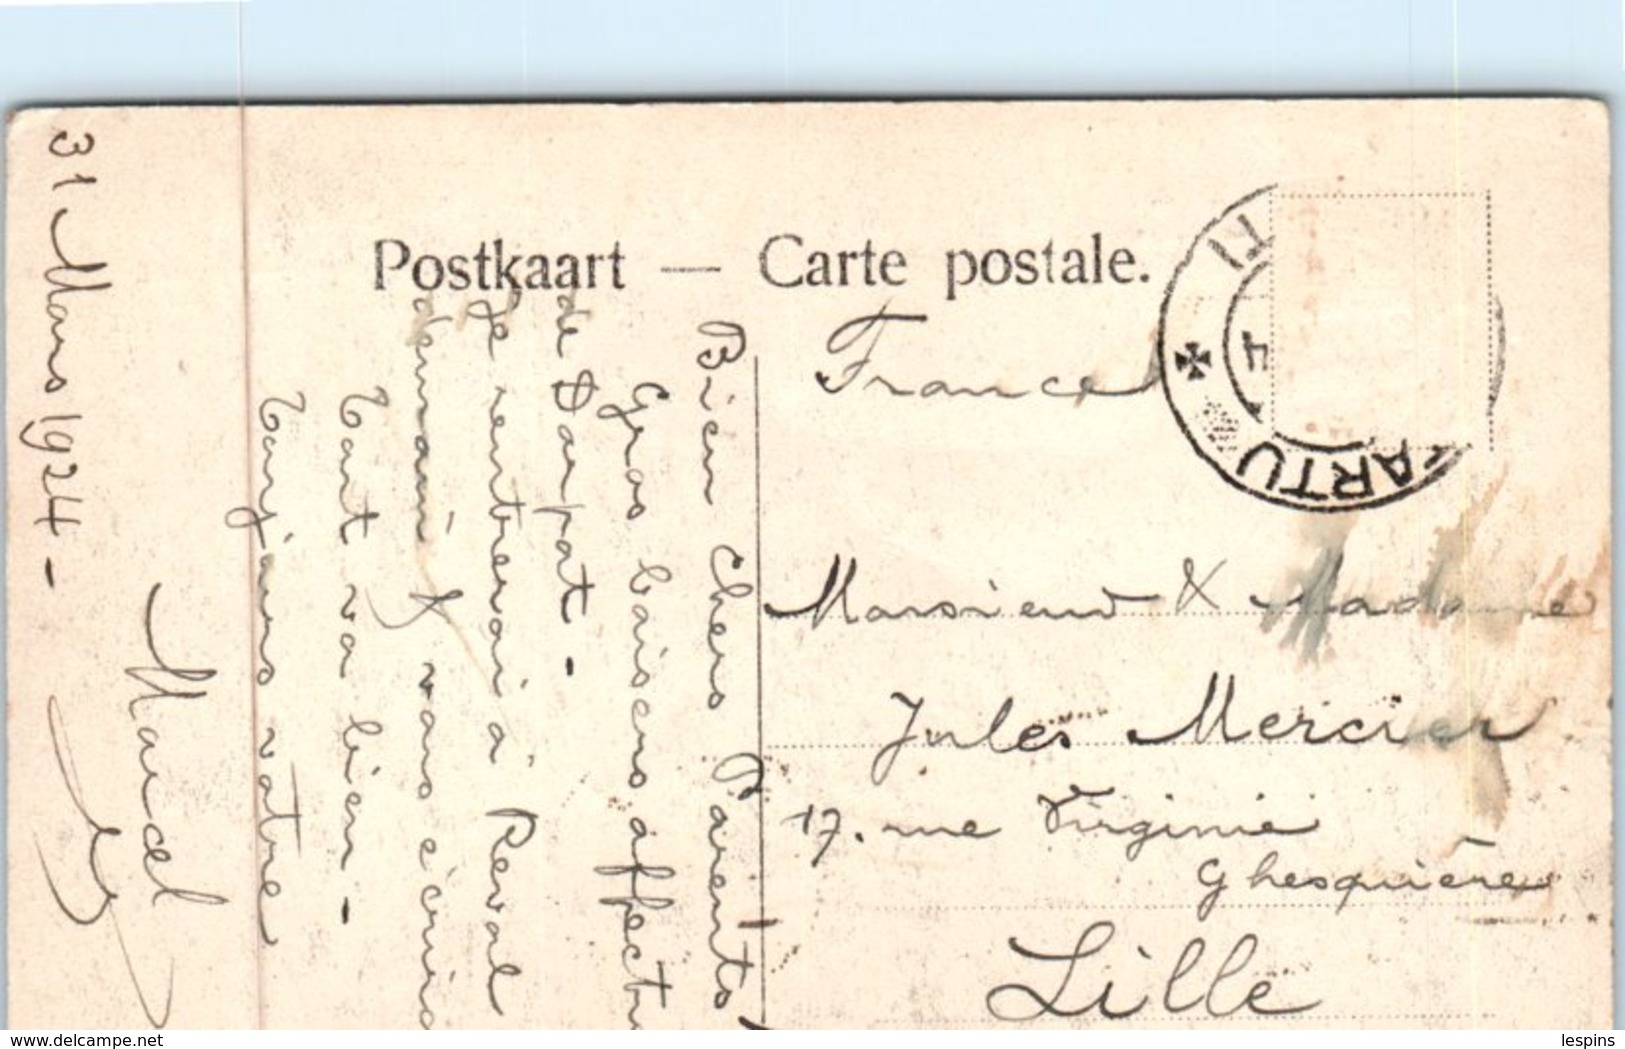 Postkaart — Carte postale.
31 Mars 1924 -
Bien Chers Parents
Gros baisers affectu
de Dorpat -
Je rentrerai à Reval
demain & vous écrirai
Tout va bien -
Toujours votre
Marcel
TARTU
4
France
Monsieur & Madame
Jules Mercier
17. rue Virginie
Ghesquière
Lille
delcampe.net
lespins